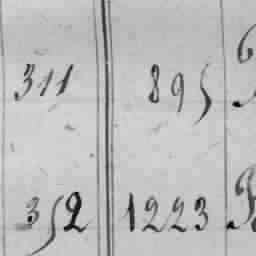 311 895
352 1223